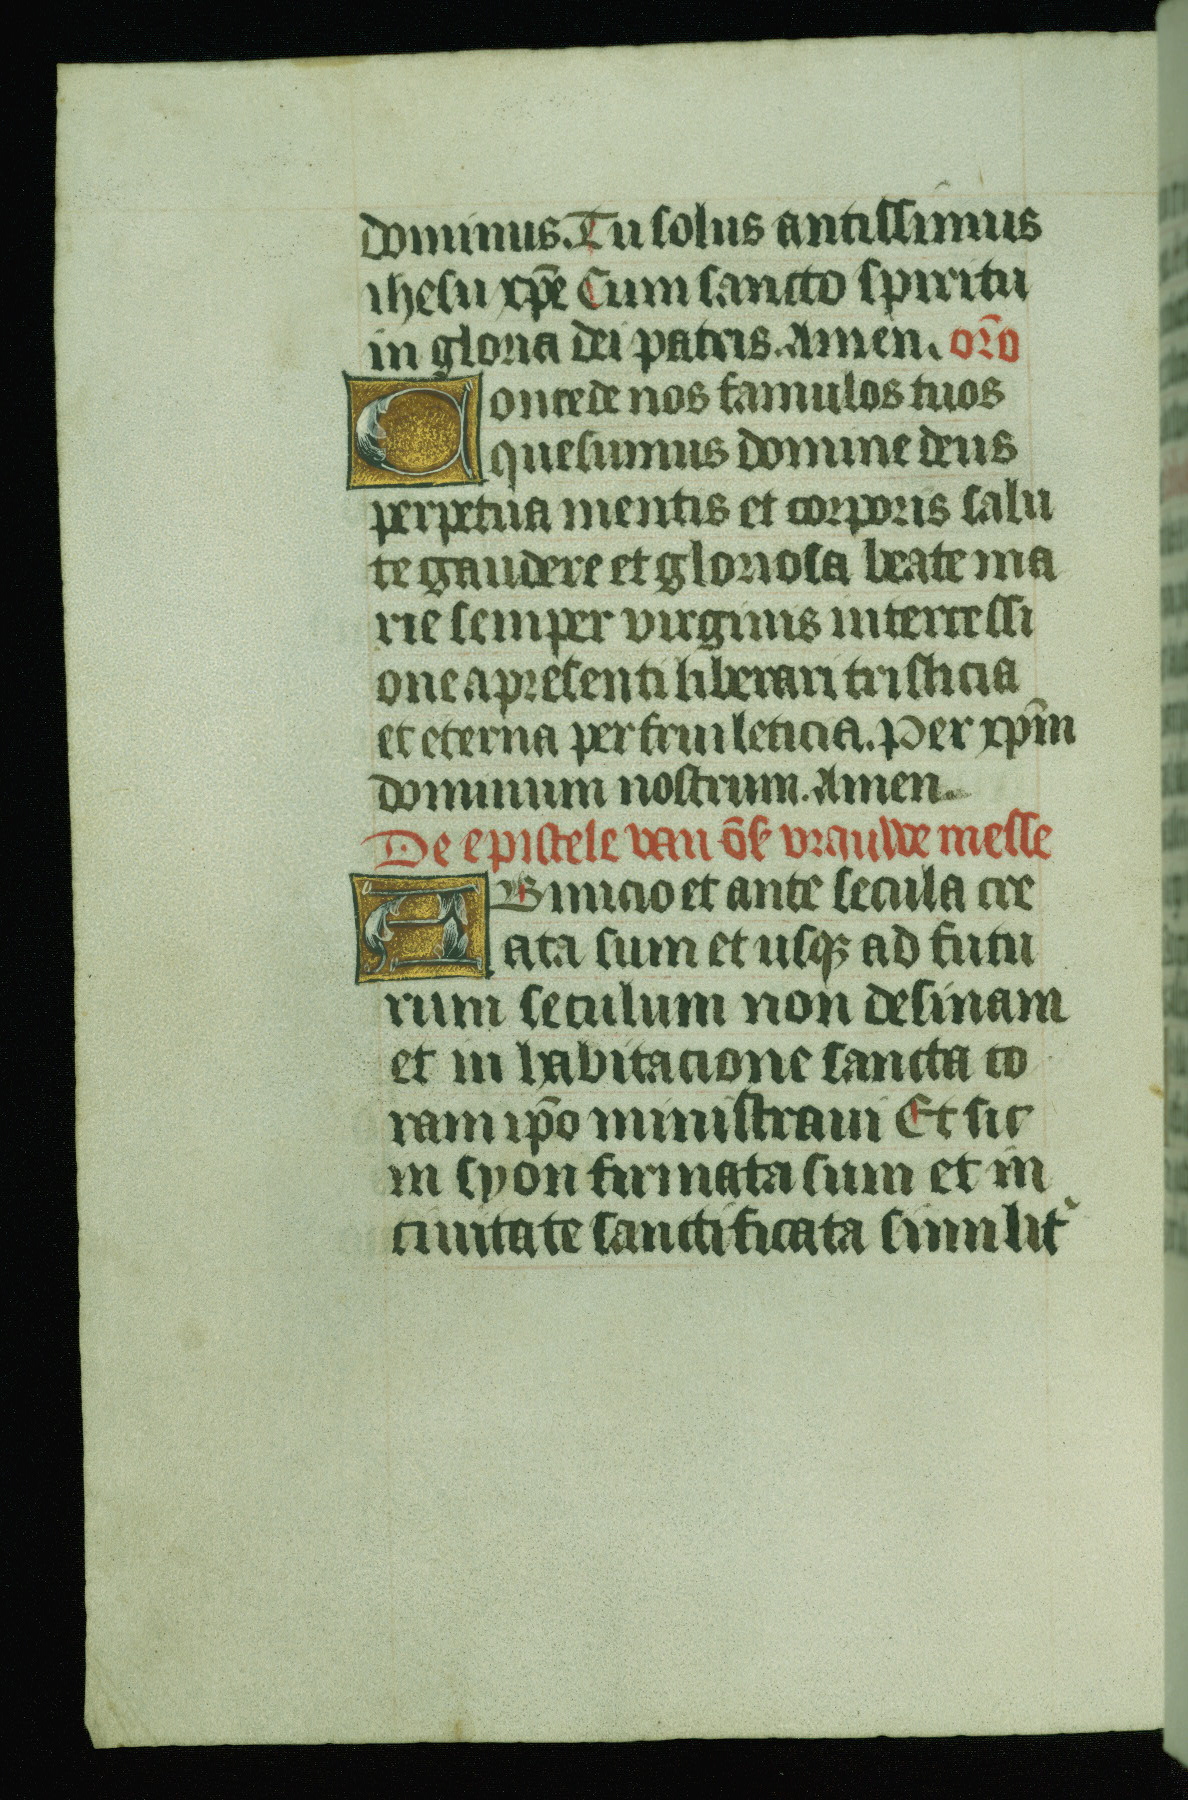 dominus. Tu solus antissimus
ihesu xp̄e Cum sancto spiritu
in gloria dei patris. Amen. or̄o
Concede nos famulos tuos
quesumus domine deus
perpetua mentis et corporis salu
te gaudere et gloriosa beate ma
rie semper virginis intercessi
one a presenti liberari tristicia
et eterna perfrui leticia. Per xp̄m
dominum nostrum. Amen.
De epistele van ōse vrauwe messe
AB inicio et ante secula cre
ata sum et usqꝫ ad futu
rum seculum non desinam
et in habitacione sancta co
ram ip̄o ministraui Et sic
in syon firmata sum et in
ciuitate sanctificata similit᾿